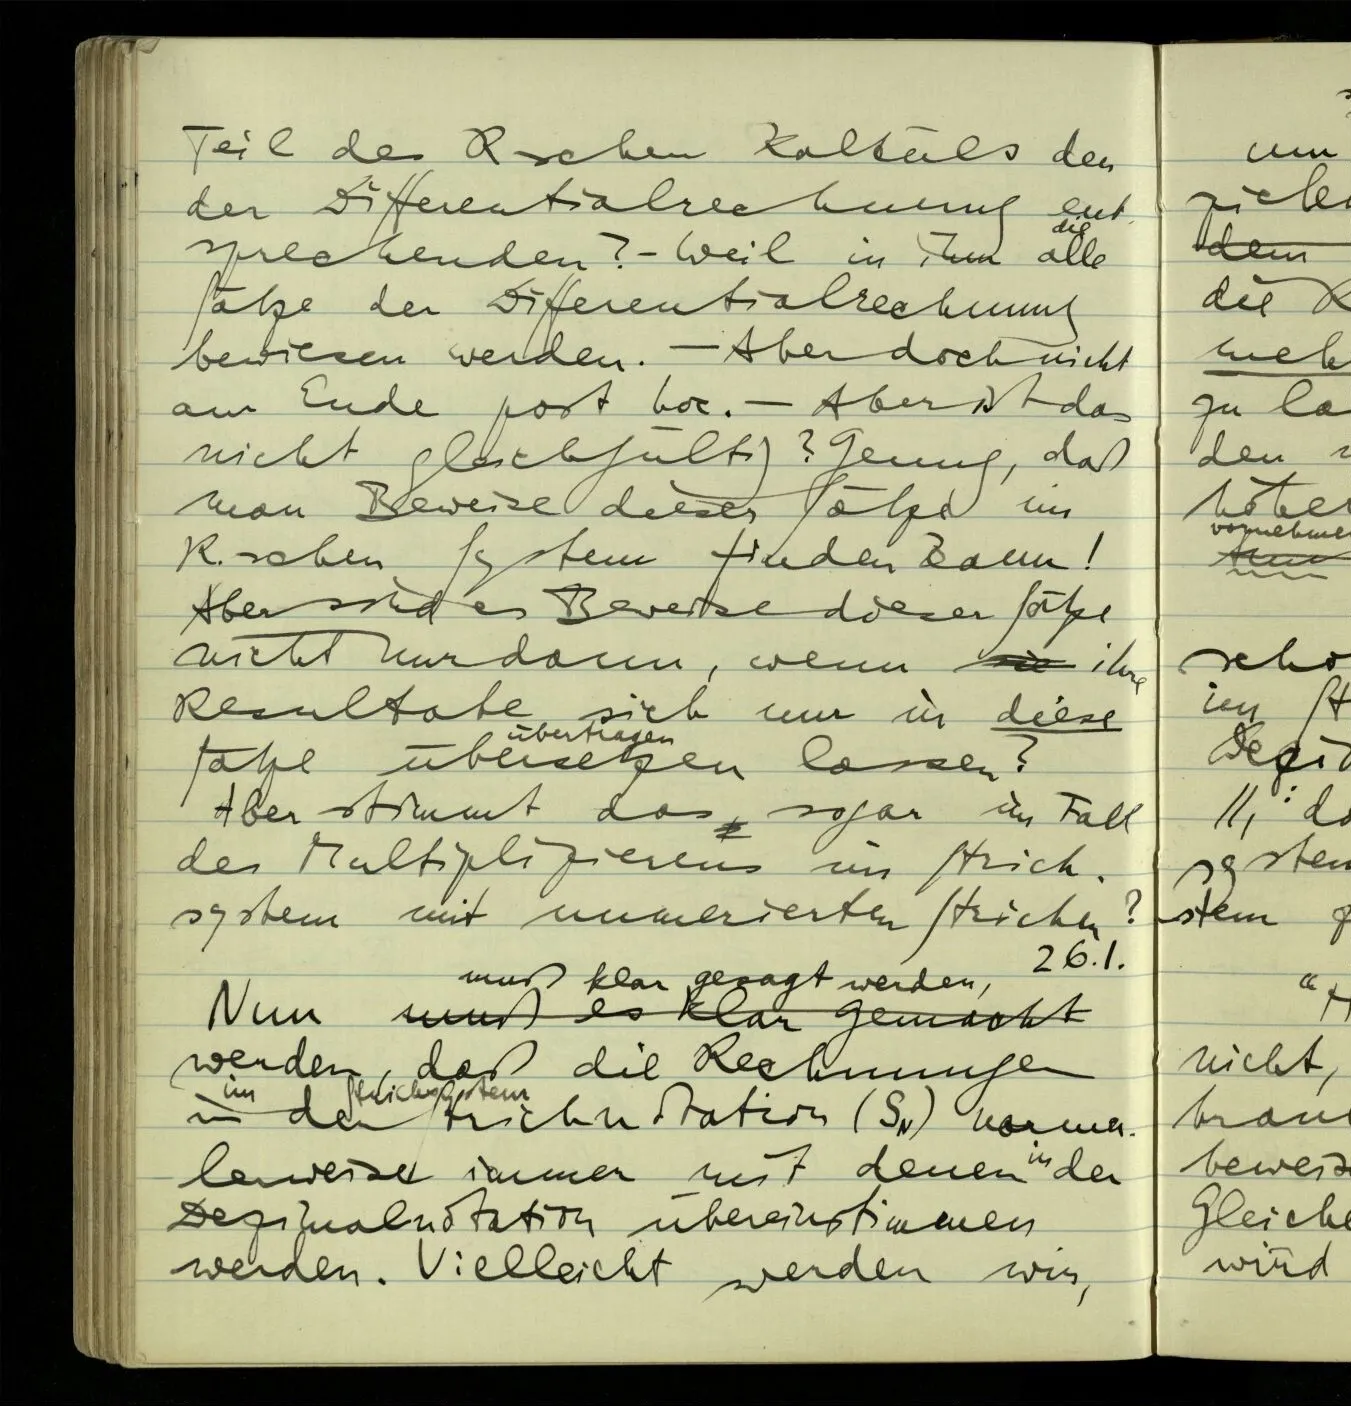 Teil des R-schen Kalküls den
der Differentialrechnung ent-
die
sprechenden? – Weil in ihm alle
Sätze der Differentialrechnung
bewiesen werden. – Aber doch nicht
am Ende post hoc. – Aber ist das
nicht gleichgültig? Genug, daß
man Beweise dieser Sätze im
R.schen System finden kann!
Aber sind es Beweise dieser Sätze
nicht nur dann, wenn sie ihre
Resultate sich nur in diese
übertragen
Sätze übersetzen lassen?
Aber stimmt das, sogar im Fall
des Multiplizierens im Strich-
system mit numerierten Strichen?
26.1.
muß klar gesagt werden,
Nun muß es klar gemacht
werden, daß die Rechnungen
im Strichsystem
in der Strichnotation (SN) norma-
lerweise immer mit denen in der
Dezimalnotation übereinstimmen
werden. Vielleicht werden wir,
um
dem
die R
zu la
den
vornehmen
scho
im St
system
stem
nicht,
beweis
Gleiche
wird